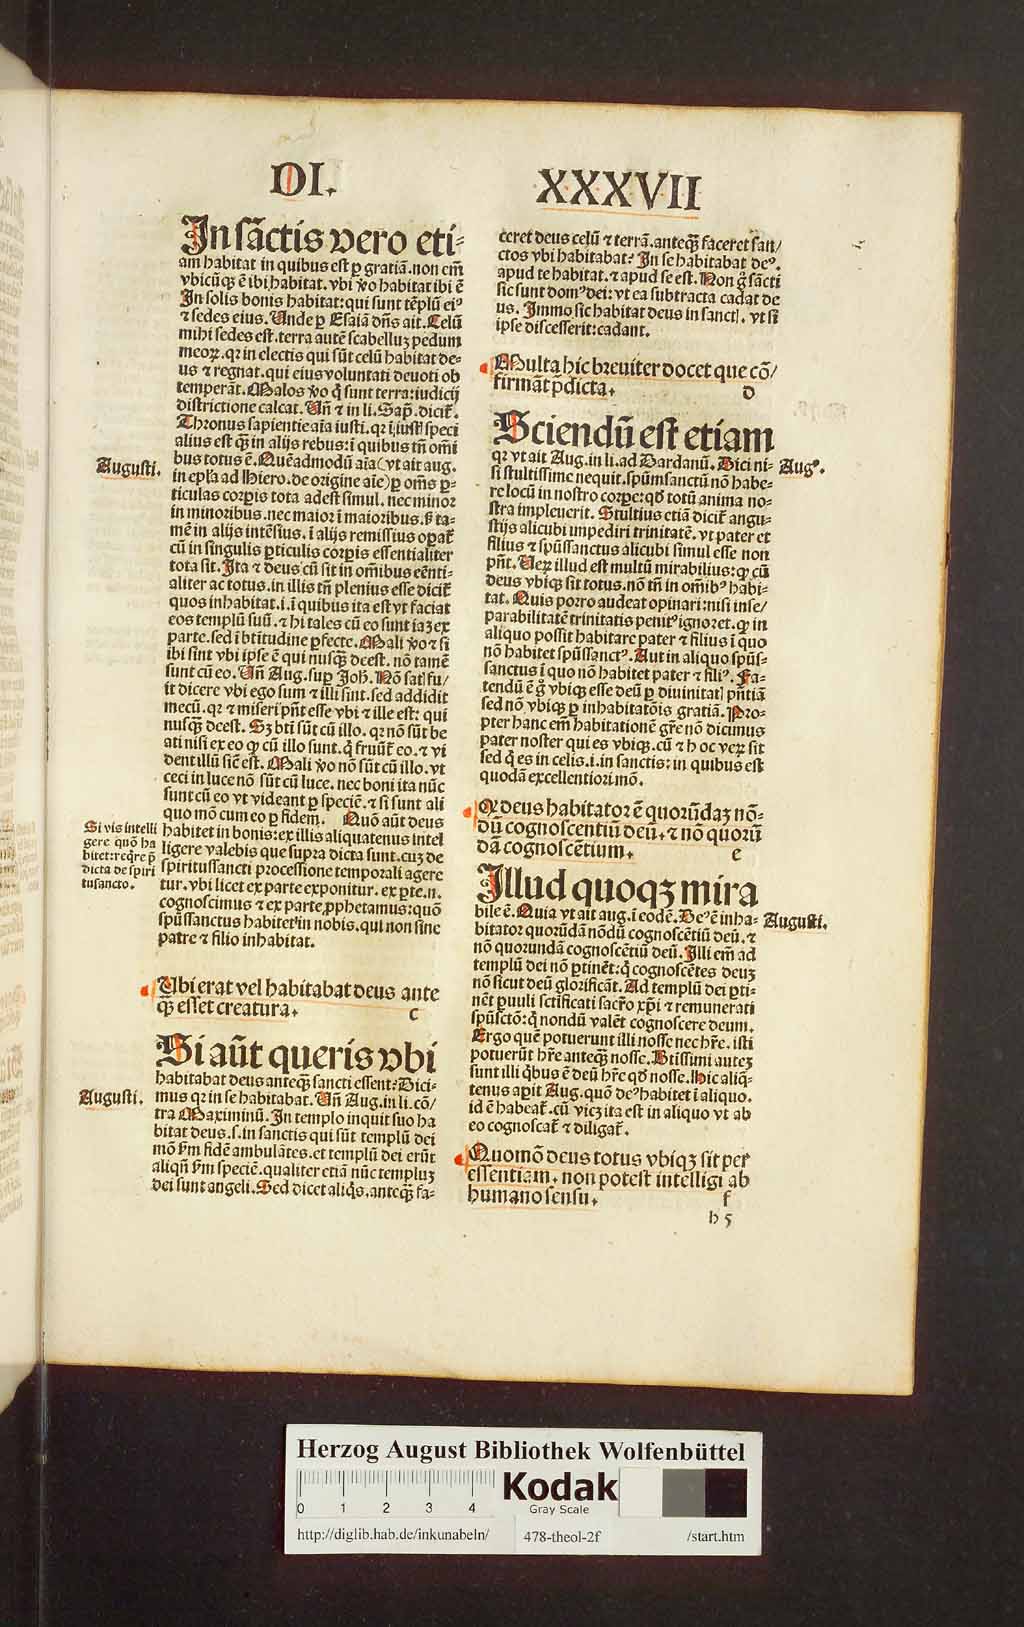 DI.
XXXVII
In sãctis vero eti⸗
am habitat in quibus est ꝑ gratiã. non em̃
vbicũqꝫ ẽ ibi habitat. vbi v̊o habitat ibi ẽ
In solis bonis habitat: qui sunt tẽplũ eiꝰ
⁊ sedes eius. Unde ꝑ Esaiã dñs ait. Celũ
mihi sedes est. terra autẽ scabelluꝫ pedum
meoꝝ. qꝛ in electis qui sũt celũ habitat de⸗
us ⁊ regnat. qui eius voluntati deuoti ob
temperãt. Malos v̊o q̇ sunt terra: iudicij
districtione calcat. Uñ ⁊ in li. Sap̃. dicit̃.
Thronus sapientie aĩa iusti. qꝛ ĩ iustꝭ speci
alius est q̃ꝫ in alijs rebus: ĩ quibus tñ om̃i
bus totus ẽ. Quẽadmodũ aĩa (vt ait aug.
in ep̃la ad Hiero. de origine aĩe) ꝑ om̃s ꝑ⸗
ticulas corpis tota adest simul. nec minor
in minoribus. nec maior ĩ maioribus. s̃ ta⸗
mẽ in alijs intẽsius. ĩ alijs remissius oꝑat̃
cũ in singulis ꝑticulis corpis essentialiter
tota sit. Ita ⁊ deus cũ sit in om̃ibus eẽnti⸗
aliter ac totus. in illis tñ plenius esse dicit̃
quos inhabitat. i. ĩ quibus ita est vt faciat
eos templũ suũ. ⁊ hi tales cũ eo sunt iaꝫ ex
parte. sed ĩ bt̃itudine ꝑfecte. Mali v̊o ⁊ si
ibi sint vbi ipse ẽ qui nusq̃ꝫ deest. nõ tamẽ
sunt cũ eo. Uñ Aug. suꝑ Joh̃. Nõ satꝭ fu/
it dicere vbi ego sum ⁊ illi sint. sed addidit
mecũ. qꝛ ⁊ miseri pñt esse vbi ⁊ ille est: qui
nusq̃ꝫ deest. Sꝫ bt̃i sũt cũ illo. qꝛ nõ sũt be
ati nisi ex eo ꝙ cũ illo sunt. q̇ fruũt̃ eo. ⁊ vi
dent illũ sic̃ est. Mali v̊o nõ sũt cũ illo. vt
ceci in luce nõ sũt cũ luce. nec boni ita nũc
sunt cũ eo vt videant ꝑ speciẽ. ⁊ si sunt ali
quo mõ cum eo ꝑ fidem. Quõ aũt deus
habitet in bonis: ex illis aliquatenus intel
ligere valebis que supra dicta sunt. cuꝫ de
spiritussancti processione temporali agere
tur. vbi licet ex parte exponitur. ex ꝑte. n.
cognoscimus ⁊ ex parte ꝓphetamus: quõ
spũssanctus habitet in nobis. qui non sine
patre ⁊ filio inhabitat.
Augusti.
Si vis intelli
gere quõ ha
bitet: req̃re p̃
dicta de spiri
tusancto.
Ubi erat vel habitabat deus ante
q̃ꝫ esset creatura. c
Si aũt queris vbi
habitabat deus anteq̃ꝫ sancti essent: Dici⸗
mus qꝛ in se habitabat. Uñ Aug. in li. cõ/
tra Maximinũ. In templo inquit suo ha
bitat deus. s. in sanctis qui sũt templũ dei
mõ s̃m fidẽ ambulãtes. et templũ dei erũt
aliqñ s̃m speciẽ. qualiter etiã nũc templuꝫ
dei sunt angeli. Sed dicet aliq̇s. anteq̃ꝫ fa⸗
Augusti.
ceret deus celũ ⁊ terrã. anteq̃ꝫ faceret san/
ctos vbi habitabat: In se habitabat deꝰ.
apud te habitat. ⁊ apud se est. Non g̊ sãcti
sic sunt domꝰ dei: vt ea subtracta cadat de
us. Immo sic habitat deus in sanctꝭ. vt si
ipse discesserit: cadant.
Multa hic breuiter docet que cõ/
firmãt p̃dicta. d
Sciendũ est etiam
qꝛ vt ait Aug. in li. ad Dardanũ. Dici ni⸗
si stultissime nequit. spũmsanctũ nõ habe⸗
re locũ in nostro corꝑe: qð totũ anima no⸗
stra impleuerit. Stultius etiã dicit̃ angu⸗
stijs alicubi impediri trinitatẽ. vt pater et
filius ⁊ spũssanctus alicubi simul esse non
pñt. Ueꝝ illud est multũ mirabilius: ꝙ cũ
deus vbiqꝫ sit totus. nõ tñ in om̃ibꝰ habi⸗
tat. Quis porro audeat opinari: nisi inse/
parabilitatẽ trinitatis penitꝰ ignoret. ꝙ in
aliquo possit habitare pater ⁊ filius ĩ quo
nõ habitet spũssanctꝰ. Aut in aliquo spũs⸗
sanctus ĩ quo nõ habitet pater ⁊ filiꝰ. Fa⸗
tendũ ẽ g̊ vbiqꝫ esse deũ ꝑ diuinitatꝭ pñtiã
sed nõ vbiqꝫ ꝑ inhabitatõis gratiã. Pro⸗
pter hanc em̃ habitationẽ gr̃e nõ dicimus
pater noster qui es vbiqꝫ. cũ ⁊ hoc veꝝ sit
sed q̇ es in celis. i. in sanctis: in quibus est
quodã excellentiori mõ.
Augꝰ.
Qꝛ deus habitator ẽ quorũdaꝫ nõ⸗
dũ cognoscentiũ deũ. ⁊ nõ quorũ
dã cognoscẽtium. e
Illud quoqꝫ mira
bile ẽ. Quia vt ait aug. ĩ eodẽ. Deꝰ ẽ inha⸗
bitator quorũdã nõdũ cognoscẽtiũ deũ. ⁊
nõ quorundã cognoscẽtiũ deũ. Illi em̃ ad
templũ dei nõ ꝑtinẽt: q̇ cognoscẽtes deuꝫ
nõ sicut deũ glorificãt. Ad templũ dei ꝑti⸗
nẽt ꝑuuli sctificati sacr̃o xp̃i ⁊ remunerati
spũsctõ: q̇ nondũ valẽt cognoscere deum.
Ergo quẽ potuerunt illi nosse nec hr̃e. isti
potuerũt hr̃e anteq̃ꝫ nosse. Btissimi auteꝫ
sunt illi q̇bus ẽ deũ hr̃e qð nosse. Hic aliq̃⸗
tenus aꝑit Aug. quõ deꝰ habitet ĩ aliquo.
id ẽ habeat̃. cũ vicꝫ ita est in aliquo vt ab
eo cognoscat̃ ⁊ diligat̃.
Augusti.
Quomõ deus totus vbiqꝫ sit per
essentiam. non potest intelligi ab
humano sensu. f
h 5
Herzog August Bibliothek Wolfenbüttel
0 1 2 3 4
Kodak
Gray Scale
http://diglib.hab.de/inkunabeln/ 478-theol-2f /start.htm